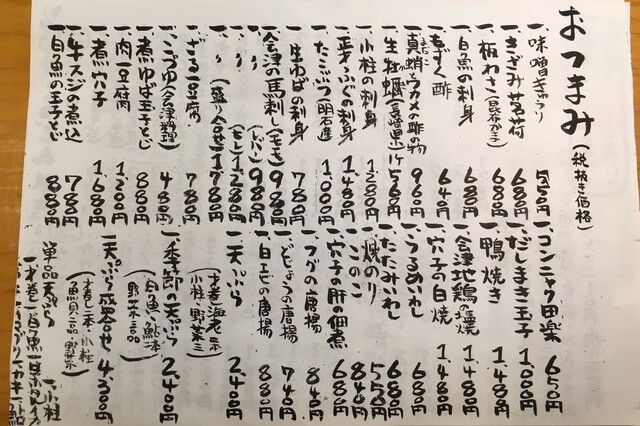 おつまみ(税抜き価格)
一、味噌きゅうり 550円
一、きざみ茗荷 680円
一、板わさ(昆布が子) 680円
一、白魚の刺身 680円
一、もずく酢 640円
一、真蛸とワカメの酢の物 960円
一、生牡蠣(長崎県)1ケ 560円
一、小柱の刺身 1,380円
一、正才ふぐの刺身 1,480円
一、たこぶつ(明石産) 1,000円
一、生ゆばの刺身 780円
一、会津の馬刺し(モモ) 980円
一、〃(レバー) 980円
一、〃(ヒレ) 1,280円
一、〃(盛り合せ) 1,780円
一、ざる豆腐 780円
一、こづゆ(会津料理) 480円
一、煮ゆば玉子とじ 880円
一、肉豆腐 1,200円
一、煮穴子 1,680円
一、牛スジの煮込 780円
一、白魚の玉子とじ 880円
一、コンニャク田楽 650円
一、だしまき玉子 1,000円
一、鴨焼き 1,480円
一、会津地鶏の塩焼 1,480円
一、穴子の白焼 1,480円
一、うるめいわし 680円
一、たたみいわし 680円
一、焼のり 550円
一、このこ 840円
一、穴子の肝の佃煮 680円
一、フグの唐揚 840円
一、どじょうの唐揚 740円
一、白エビの唐揚 880円
一、天ぷら 2,40円
(才巻海老二本
小柱・野菜三)
一、季節の天ぷら 2,40円
(白魚・鮎二本
野菜三品)
一、天ぷら盛合せ 4,300円
(才巻二本・小柱
魚貝三品・野菜)
単品天ぷら
一、小柱